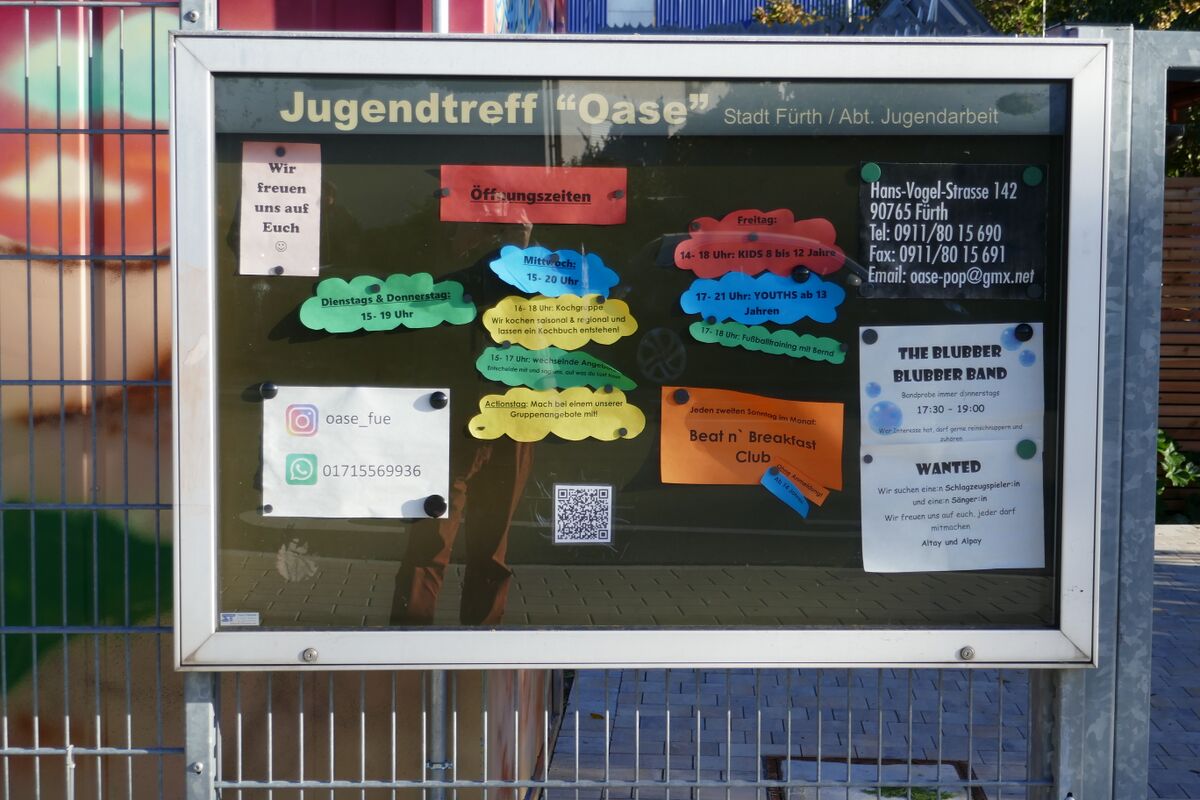 Jugendtreff “Oase” Stadt Fürth / Abt. Jugendarbeit
Wir
freuen
uns auf
Euch
☺
Öffnungszeiten
Dienstags & Donnerstag:
15- 19 Uhr
Mittwoch:
15- 20 Uhr
16- 18 Uhr: Kochgruppe
Wir kochen saisonal & regional und
lassen ein Kochbuch entstehen!
15- 17 Uhr: wechselnde Angebote
Entscheide mit und sag uns, auf was du Lust hast!
Actionstag: Mach bei einem unserer
Gruppenangebote mit!
Freitag:
14- 18 Uhr: KIDS 8 bis 12 Jahre
17- 21 Uhr: YOUTHS ab 13
Jahren
17- 18 Uhr: Fußballtraining mit Bernd
Hans-Vogel-Strasse 142
90765 Fürth
Tel: 0911/80 15 690
Fax: 0911/80 15 691
Email: oase-pop@gmx.net
oase_fue
01715569936
Jeden zweiten Sonntag im Monat:
Beat n` Breakfast
Club
Ohne Anmeldung!
Ab 14 Jahren
THE BLUBBER
BLUBBER BAND
Bandprobe immer donnerstags
17:30 - 19:00
Wer Interesse hat, darf gerne reinschnuppern und
zuhören
WANTED
Wir suchen eine:n Schlagzeugspieler:in
und eine:n Sänger:in
Wir freuen uns auf euch, jeder darf
mitmachen
Altay und Alpay